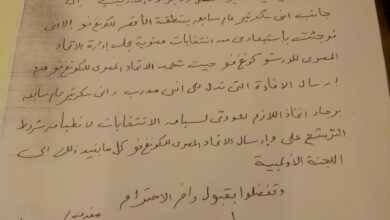 جانب انى سكرتير عام سابق بمنطقة الأقصر للكونغ فو إلا انى
فوجئت بإستبعادى من انتخابات عضوية مجلس إدارة الاتحاد
المصرى للووشو كونغ فو حيث تعمد الاتحاد المصرى للكونغ فو عدم
إرسال الافادة التى تدل على انى مدرب وانى سكرتير عام سابق
برجاء اتخاذ اللازم لعودتى لسباق الانتخابات لانطباق شروط
الترشح على وإرسال الاتحاد المصرى للكونغ فو كل ما يفيد ذلك الى
اللجنة الأولمبية
وتفضلوا بقبول وافر الاحترام